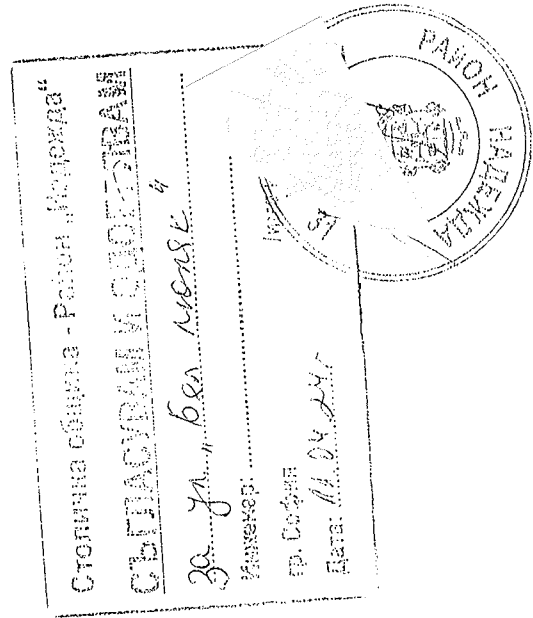 Столична община - Район „Надежда“
СЪГЛАСУВАМ И ОДОБРЯВАМ
за ул. „Бял люляк“
Инженер:
гр. София
Дата: 11.04.24г
РАЙОН НАДЕЖДА